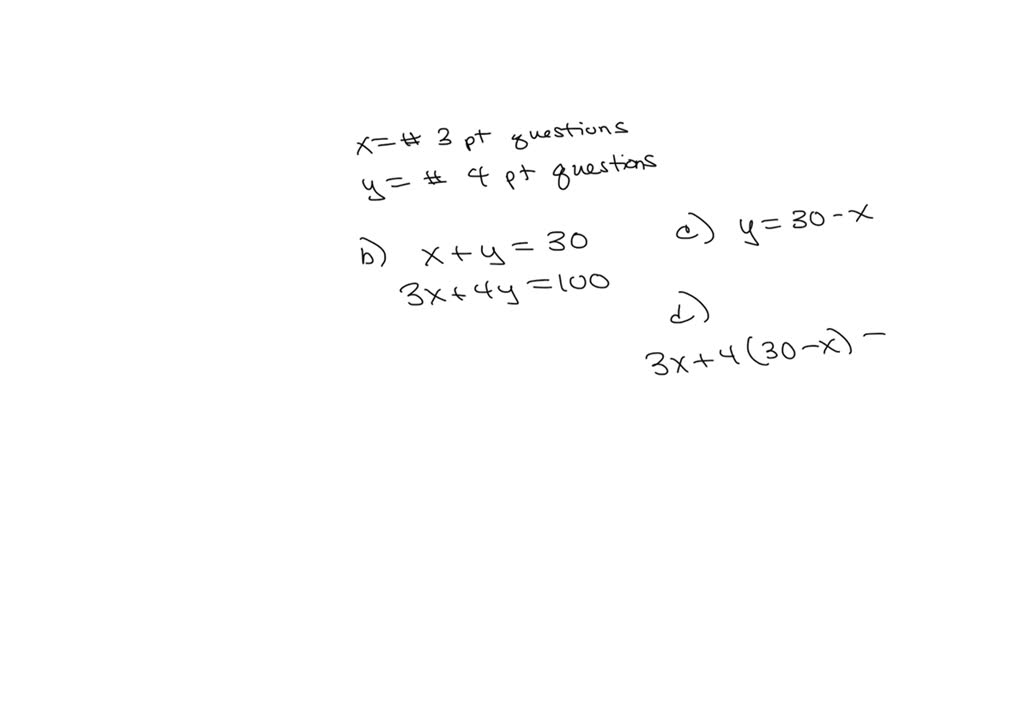 x = # 3 pt questions
y = # 4 pt questions
b) x + y = 30
3x + 4y = 100
c) y = 30 - x
d)
3x + 4(30 - x) -